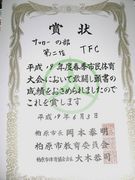 賞状
サッカーの部
第二位 TFC
平成19年度春季市民体育
大会において敢闘し頭書の
成績をおさめられましたので
これを賞します
平成19年6月3日
柏原市長 岡本泰明
柏原市教育委員会
柏原市体育協会会長 大木恭司